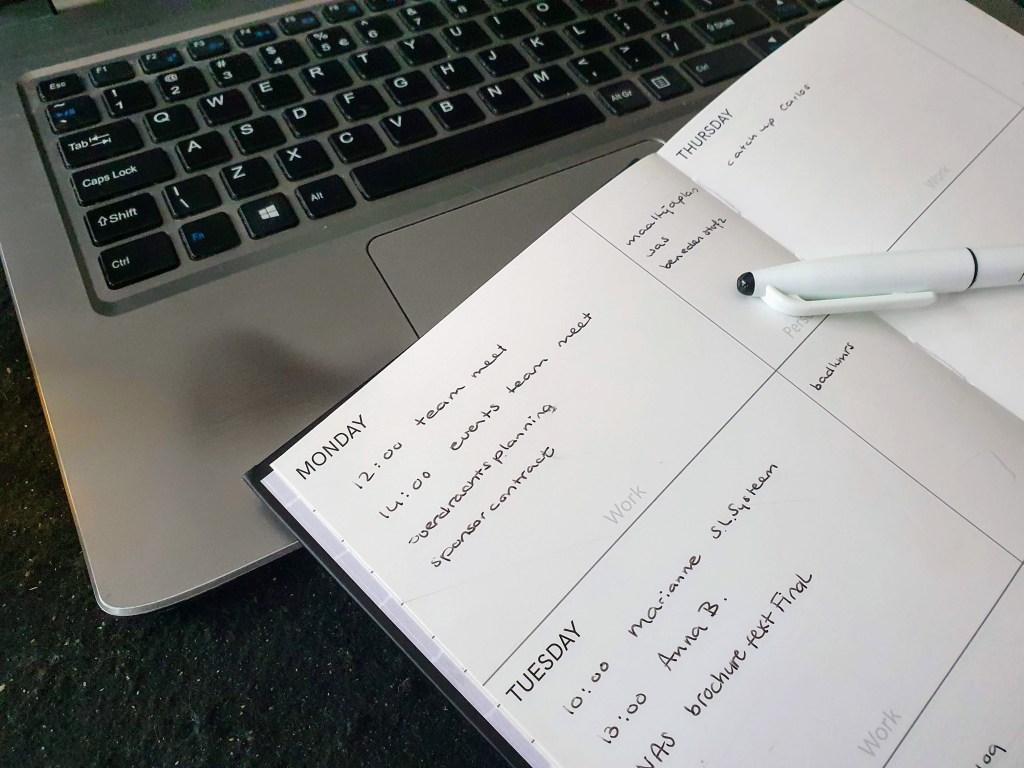 Esc F1 F2 F3 F4
~ ! 1 @ 2 # 3 $ 4 % 5 € ^ 6 & 7 * 8
Tab Q W E R T Y U I O
Caps Lock A S D F G H J K L : ;
Shift | \ Z X C V B N M < , > . ? / Shift
Ctrl Fn Alt Alt Gr Ctrl
MONDAY
12:00 team meet
14:00 events team meet
overdrachtsplanning
sponsor contract
Work
maaltijdplan
was
benedenstofz
Pers
TUESDAY
10:00 marianne SLSysteem
13:00 Anna B.
brochure text Final
Work
badkmrs
THURSDAY
catch up Carlos
Work